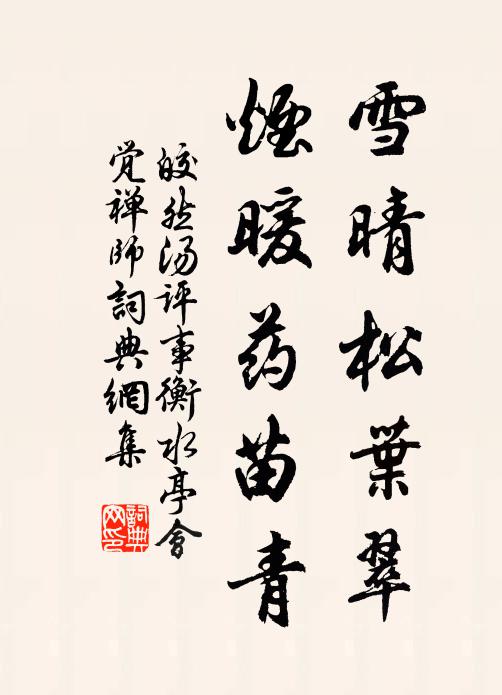 雪晴松葉翠
煙暖药苗青
皎然汤评事衡水亭會
觉禅師詞典網集
詞典
网印